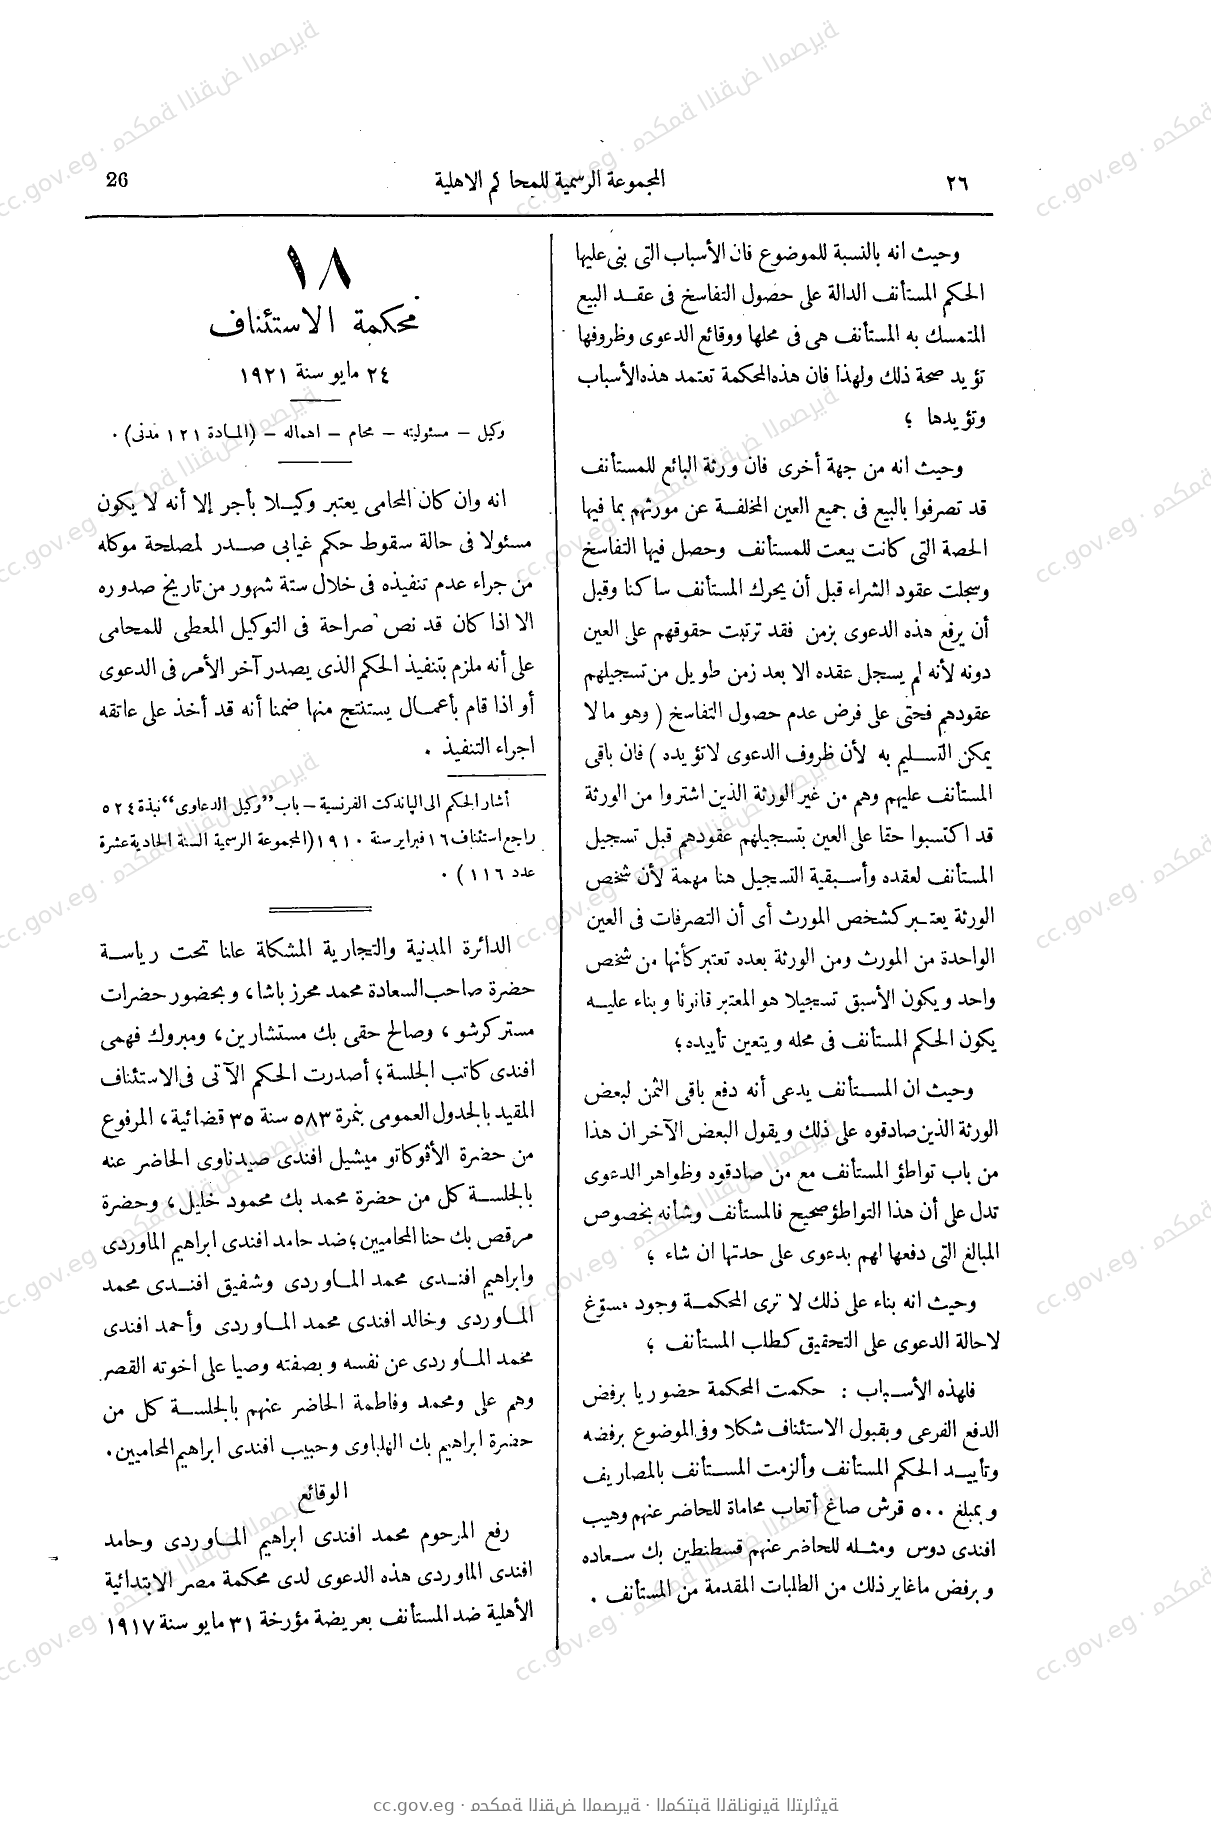 ٢٦
المجموعة الرسمية للمحاكم الاهلية
26
وحيث انه بالنسبة للموضوع فان الأسباب التى بنى عليها
الحكم المستأنف الدالة على حصول التفاسخ فى عقد البيع
المتمسك به المستأنف هى فى محلها ووقائع الدعوى وظروفها
تؤيد صحة ذلك ولهذا فان هذه المحكمة تعتمد هذه الأسباب
وتؤيدها ؛
وحيث انه من جهة أخرى فان ورثة البائع للمستأنف
قد تصرفوا بالبيع فى جميع العين المخلفة عن مورثهم بما فيها
الحصة التى كانت بيعت للمستأنف وحصل فيها التفاسخ
وسجلت عقود الشراء قبل أن يحرك المستأنف ساكنا وقبل
أن يرفع هذه الدعوى بزمن فقد ترتبت حقوقهم على العين
دونه لأنه لم يسجل عقده الا بعد زمن طويل من تسجيلهم
عقودهم فحتى على فرض عدم حصول التفاسخ ( وهو ما لا
يمكن التسليم به لأن ظروف الدعوى لا تؤيده ) فان باقى
المستأنف عليهم وهم من غير الورثة الذين اشتروا من الورثة
قد اكتسبوا حقا على العين بتسجيلهم عقودهم قبل تسجيل
المستأنف لعقده وأسبقية التسجيل هنا مهمة لأن شخص
الورثة يعتبر كشخص المورث أى أن التصرفات فى العين
الواحدة من المورث ومن الورثة بعده تعتبر كأنها من شخص
واحد ويكون الأسبق تسجيلا هو المعتبر قانونا وبناء عليه
يكون الحكم المستأنف فى محله ويتعين تأييده؛
وحيث ان المستأنف يدعى أنه دفع باقى الثمن لبعض
الورثة الذين صادقوه على ذلك ويقول البعض الآخر ان هذا
من باب تواطؤ المستأنف مع من صادقوه وظواهر الدعوى
تدل على أن هذا التواطؤ صحيح فالمستأنف وشأنه بخصوص
المبالغ التى دفعها لهم بدعوى على حدتها ان شاء ؛
وحيث انه بناء على ذلك لا ترى المحكمة وجود مسوّغ
لاحالة الدعوى على التحقيق كطلب المستأنف ؛
فلهذه الأسباب : حكمت المحكمة حضوريا برفض
الدفع الفرعى وبقبول الاستئناف شكلا وفى الموضوع برفضه
وتأييد الحكم المستأنف وألزمت المستأنف بالمصاريف
وبمبلغ ٥٠٠ قرش صاغ أتعاب محاماة للحاضر عنهم وهيب
افندى دوس ومثله للحاضر عنهم قسطنطين بك سعاده
وبرفض ما غاير ذلك من الطلبات المقدمة من المستأنف .
١٨
محكمة الاستئناف
٢٤ مايو سنة ١٩٢١
وكيل – مسئوليته – محام – اهماله – (المادة ١٢١ مدنى) .
انه وان كان المحامى يعتبر وكيلا بأجر إلا أنه لا يكون
مسئولا فى حالة سقوط حكم غيابى صدر لمصلحة موكله
من جراء عدم تنفيذه فى خلال ستة شهور من تاريخ صدوره
الا اذا كان قد نص صراحة فى التوكيل المعطى للمحامى
على أنه ملزم بتنفيذ الحكم الذى يصدر آخر الأمر فى الدعوى
أو اذا قام بأعمال يستنتج منها ضمنا أنه قد أخذ على عاتقه
اجراء التنفيذ .
أشار الحكم الى الپاندكت الفرنسية – باب "وكيل الدعاوى" نبذة ٥٢٤
راجع استئناف ١٦ فبراير سنة ١٩١٠ (المجموعة الرسمية السنة الحادية عشرة
عدد ١١٦ ) .
الدائرة المدنية والتجارية المشكلة علنا تحت رياسة
حضرة صاحب السعادة محمد محرز باشا، وبحضور حضرات
مستر كرشو ، وصالح حقى بك مستشارين، ومبروك فهمى
افندى كاتب الجلسة؛ أصدرت الحكم الآتى فى الاستئناف
المقيد بالجدول العمومى بنمرة ٥٨٣ سنة ٣٥ قضائية، المرفوع
من حضرة الأڤوكاتو ميشيل افندى صيدناوى الحاضر عنه
بالجلسة كل من حضرة محمد بك محمود خليل، وحضرة
مرقص بك حنا المحاميين؛ ضد حامد افندى ابراهيم الماوردى
وابراهيم افندى محمد الماوردى وشفيق افندى محمد
الماوردى وخالد افندى محمد الماوردى وأحمد افندى
محمد الماوردى عن نفسه وبصفته وصيا على اخوته القصر
وهم على ومحمد وفاطمة الحاضر عنهم بالجلسة كل من
حضرة ابراهيم بك الهلباوى وحبيب افندى ابراهيم المحاميين.
الوقائع
رفع المرحوم محمد افندى ابراهيم الماوردى وحامد
افندى الماوردى هذه الدعوى لدى محكمة مصر الابتدائية
الأهلية ضد المستأنف بعريضة مؤرخة ٣١ مايو سنة ١٩١٧
cc.gov.eg · محكمة النقض المصرية · المكتبة القانونية التراثية